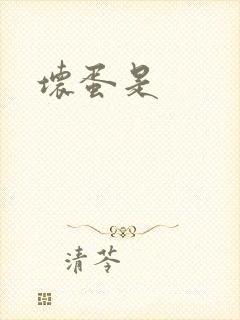 壞蛋是
清苓